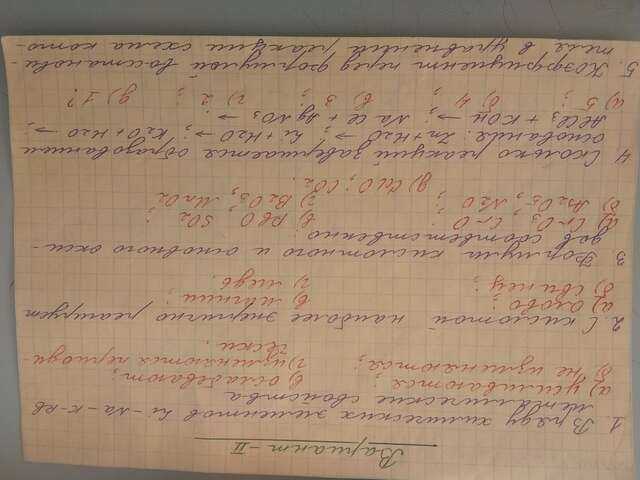 Вариант - II
1. В ряду химических элементов Li - Na - K - Rb
металлические свойства
а) усиливаются; в) ослабевают;
б) не изменяются; г) изменяются периоди-
чески.
2. С кислотой наиболее энергично реагирует
а) олово; в) магний;
б) свинец; г) медь.
3 Формулы кислотного и основного окси-
дов соответственно
а) CrO3; CrO в) PbO; SO2
б) As2O5; N2O г) B2O3; MnO2
д) CaO; CO2.
4 Сколько реакций завершается образованием
основания: Zn + H2O →; Li + H2O →; K2O + H2O →;
AlCl3 + KOH →; NaCl + AgNO3 →.
а) 5; б) 4; в) 3; г) 2; д) 1?
5. Коэффициент перед формулой восстанови-
теля в уравнении реакции схема кото-